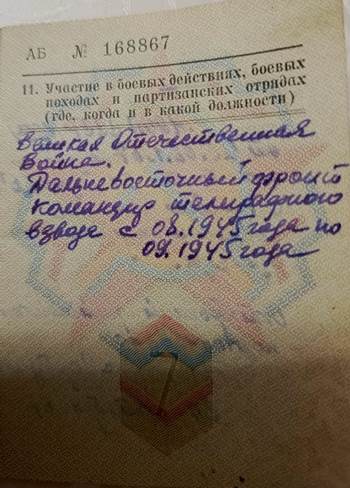 АБ № 168867
11. Участие в боевых действиях, боевых
походах и партизанских отрядах
(где, когда и в какой должности)
Великая Отечественная
Война.
Дальневосточный фронт
командир телеграфного
взвода с 08.1945 года по
09.1945 года
7